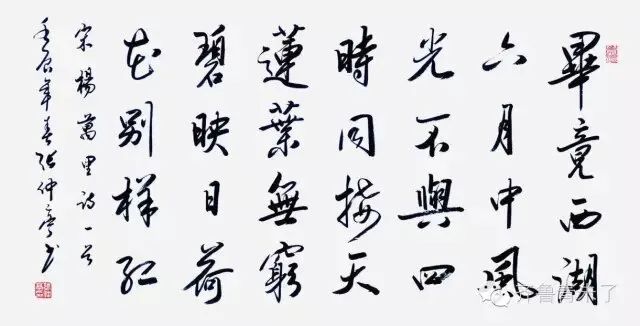 畢竟西湖
六月中風
光不與四
時同接天
蓮葉無窮
碧映日荷
花別樣紅
宋楊萬里詩一首
壬辰年春張仲亭書
齐鲁青未了